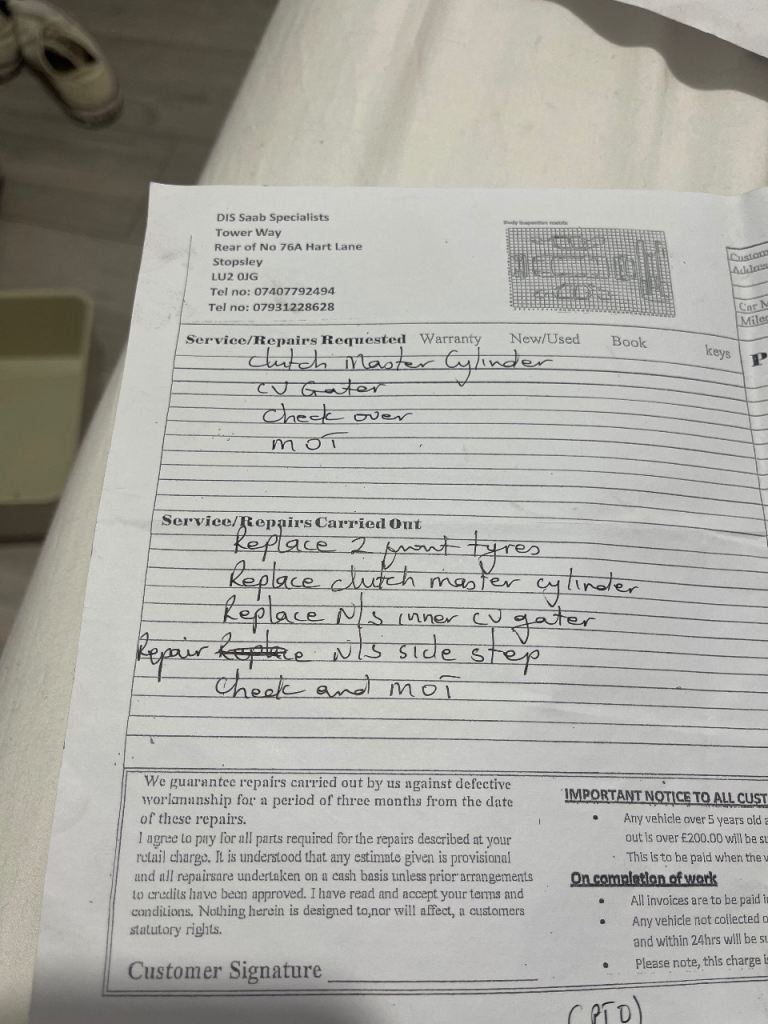 DIS Saab Specialists
Tower Way
Rear of No 76A Hart Lane
Stopsley
LU2 0JG
Tel no: 07407792494
Tel no: 07931228628
Custom
Addres
Car M
Miles
P
Service/Repairs Requested Warranty New/Used Book keys
Clutch Master Cylinder
CV Gater
Check over
MOT
Service/Repairs Carried Out
Replace 2 front tyres
Replace clutch master cylinder
Replace N/S inner CV gater
Repair Replace N/S side step
Check and MOT
We guarantee repairs carried out by us against defective
workmanship for a period of three months from the date
of these repairs.
I agree to pay for all parts required for the repairs described at your
retail charge. It is understood that any estimate given is provisional
and all repairsare undertaken on a cash basis unless prior arrangements
to credits have been approved. I have read and accept your terms and
conditions. Nothing herein is designed to,nor will affect, a customers
statutory rights.
Customer Signature
IMPORTANT NOTICE TO ALL CUST
Any vehicle over 5 years old a
out is over £200.00 will be su
This is to be paid when the v
On completion of work
All invoices are to be paid i
Any vehicle not collected o
and within 24hrs will be su
Please note, this charge i
(PTO)